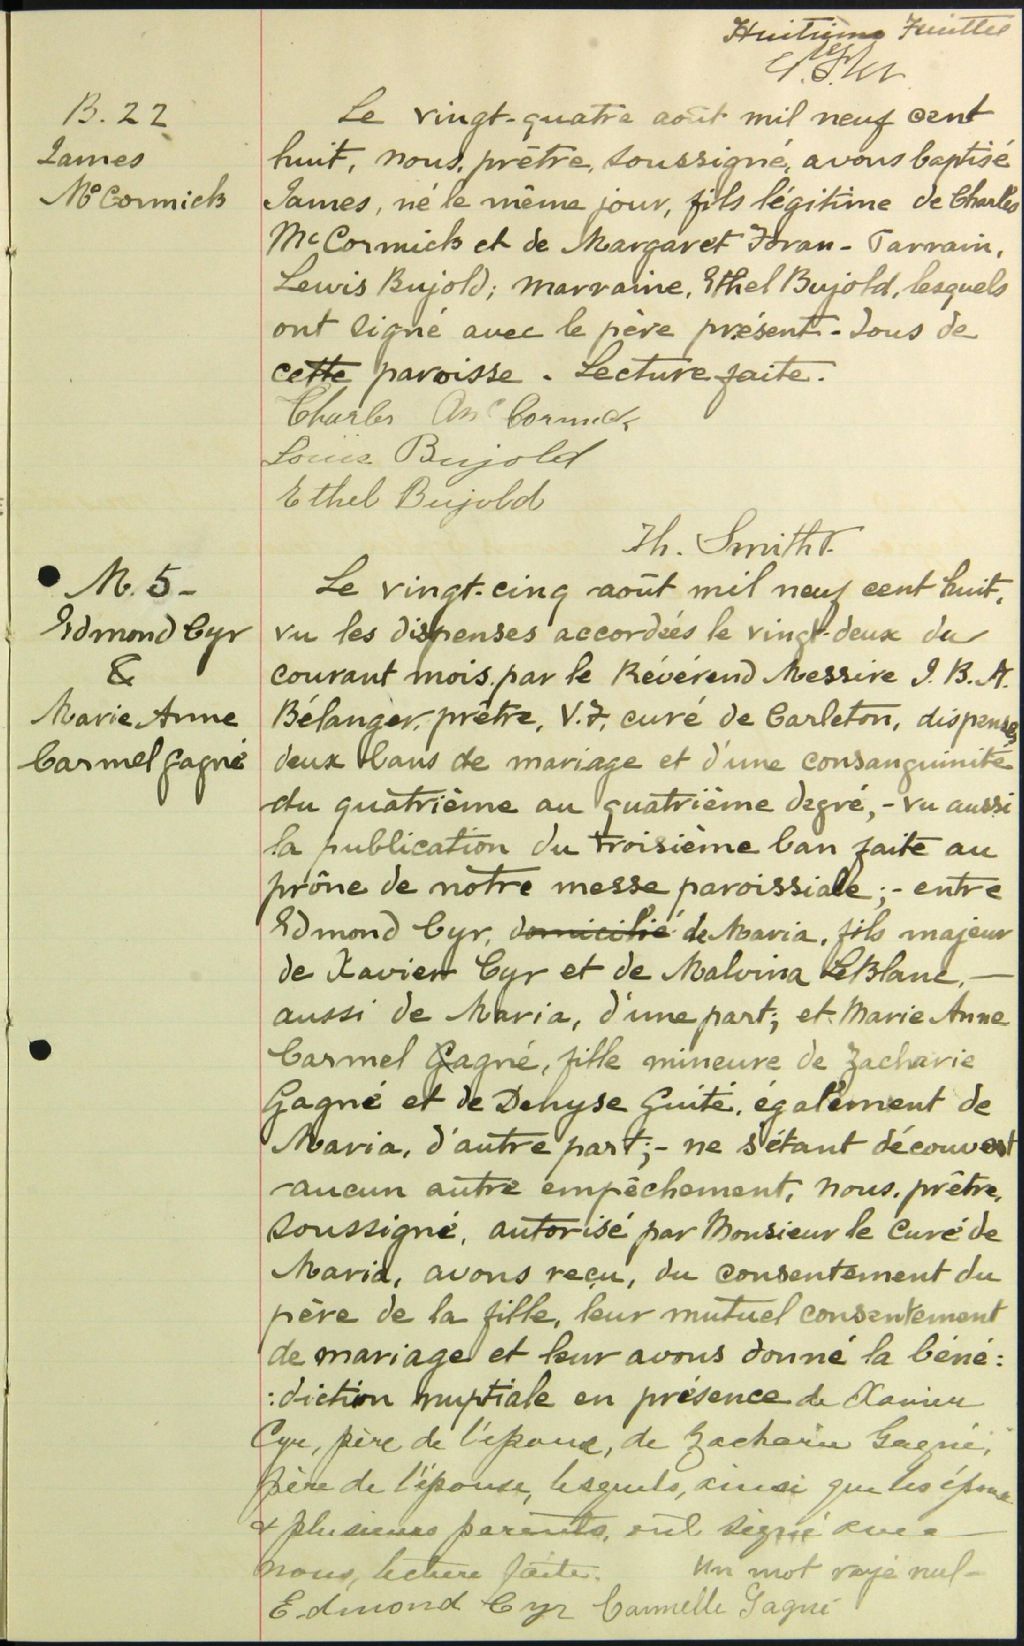 Huitième Feuillet
B. 22
James
McCormick
Le vingt-quatre août mil neuf cent
huit, nous, prêtre, soussigné, avons baptisé
James, né le même jour, fils légitime de Charles
McCormick et de Margaret Foran - Parrain,
Lewis Bujold; marraine, Ethel Bujold, lesquels
ont signé avec le père présent. Tous de
cette paroisse. Lecture faite.
Charles McCormick
Louis Bujold
Ethel Bujold
Th. Smith
M. 5 -
Edmond Cyr
&
Marie Anne
Carmel Gagné
Le vingt-cinq août mil neuf cent huit,
vu les dispenses accordées le vingt-deux du
courant mois, par le Révérend Messire J. B. A.
Bélanger, prêtre, V.F. curé de Carleton, dispenses
deux bans de mariage et d'une consanguinité
du quatrième au quatrième degré, - vu aussi
la publication du troisième ban faite au
prône de notre messe paroissiale; - entre
Edmond Cyr, domicilié de Maria, fils majeur
de Xavier Cyr et de Malvina LeBlanc, —
aussi de Maria, d'une part; et Marie Anne
Carmel Gagné, fille mineure de Zacharie
Gagné et de Denyse Guité, également de
Maria, d'autre part; - ne s'étant découvert
aucun autre empêchement, nous, prêtre,
soussigné, autorisé par Monsieur le Curé de
Maria, avons reçu, du consentement du
père de la fille, leur mutuel consentement
de mariage et leur avons donné la béné:
:diction nuptiale en présence de Xavier
Cyr, père de l'époux, de Zacharie Gagné,
père de l'épouse, lesquels, ainsi que les époux
& plusieurs parents, ont signé avec —
nous, lecture faite. Un mot rayé nul -
Edmond Cyr Carmelle Gagné